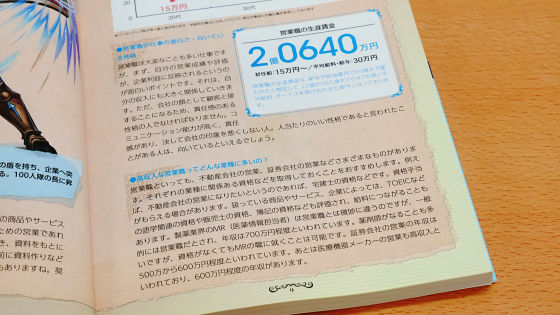 20
0
15万円
20代
30代
●営業職の仕事の面白さ・向いてい
る性格
営業職は大変なことも多い仕事です
が、まず、自分の営業成績や評価
が、企業利益に反映されるというの
が面白いポイントです。それは、自
分の収入にも大きく関係していきま
す。ただ、会社の顔として顧客と接
することになるため、責任感のある
性格の人でなければなりません。コ
ミュニケーション能力が高く、責任
感があり、決して会社の印象を悪くしない人。人当たりのいい性格であると言われたこ
とがある人は、向いているといえるでしょう。
営業職の生涯賃金
2億0640万円
初任給:15万円~/平均給料・給与:30万円
営業職の生涯賃金は、新卒が終身雇用で65歳まで雇
用されたと想定して、22歳から65歳までの43年間と平
均給料・ボーナスを掛け合わせた数字となっております。
●高収入な営業職ってどんな業種に多いの?
営業職といっても、不動産会社の営業、証券会社の営業などさまざまなものがありま
す。それぞれの業種に関係ある資格などを取得しておくことをおすすめします。例え
ば、不動産会社の営業になりたいというのであれば、宅建士の資格などです。資格手当
がもらえる場合があります。扱っている商品やサービス、企業によっては、TOEICなど
の語学関連の資格や販売士の資格、簿記の資格なども評価され、給料につながることも
あります。製薬業界のMR(医薬情報担当者)は営業職とは微妙に違うのですが、一般
的には営業職だとされ、年収は700万円程度といわれています。薬剤師がなることも多
いですが、資格がなくてもMRの職に就くことは可能です。証券会社の営業の年収は
500万から600万円程度といわれています。あとは医療機器メーカーの営業も高収入と
いわれており、600万円程度の年収があります。
の盾を持ち、企業へ突
る。100人隊の長に昇
の商品やサービス
ための営業であれ
き、資料をもとに
前に資料作りなど
もありますね。契
9